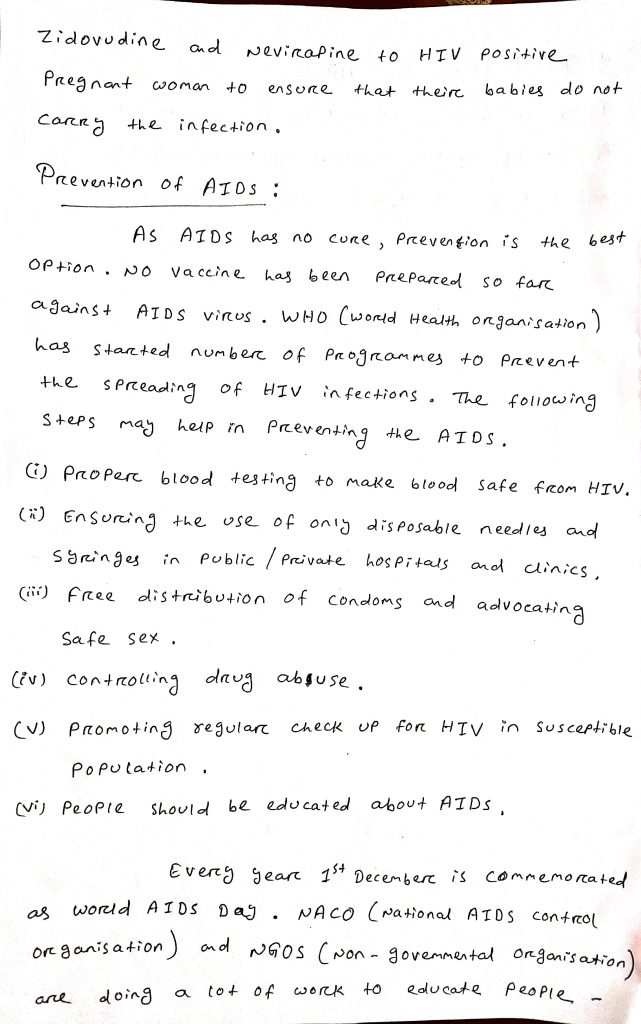 Zidovudine and Nevirapine to HIV positive
Pregnant woman to ensure that their babies do not
carry the infection.
Prevention of AIDs :
As AIDS has no cure, Prevention is the best
option. No vaccine has been prepared so far
against AIDS virus. WHO (World Health organisation)
has started number of Programmes to prevent
the spreading of HIV infections. The following
steps may help in Preventing the AIDS.
(i) Proper blood testing to make blood safe from HIV.
(ii) Ensuring the use of only disposable needles and
syringes in public / private hospitals and clinics.
(iii) Free distribution of condoms and advocating
safe sex.
(iv) controlling drug abuse.
(v) Promoting regular check up for HIV in susceptible
population.
(vi) People should be educated about AIDs.
Every year 1st December is commemorated
as world AIDS Day. NACO (National AIDS control
organisation) and NGOS (Non-governmental organisation)
are doing a lot of work to educate people -